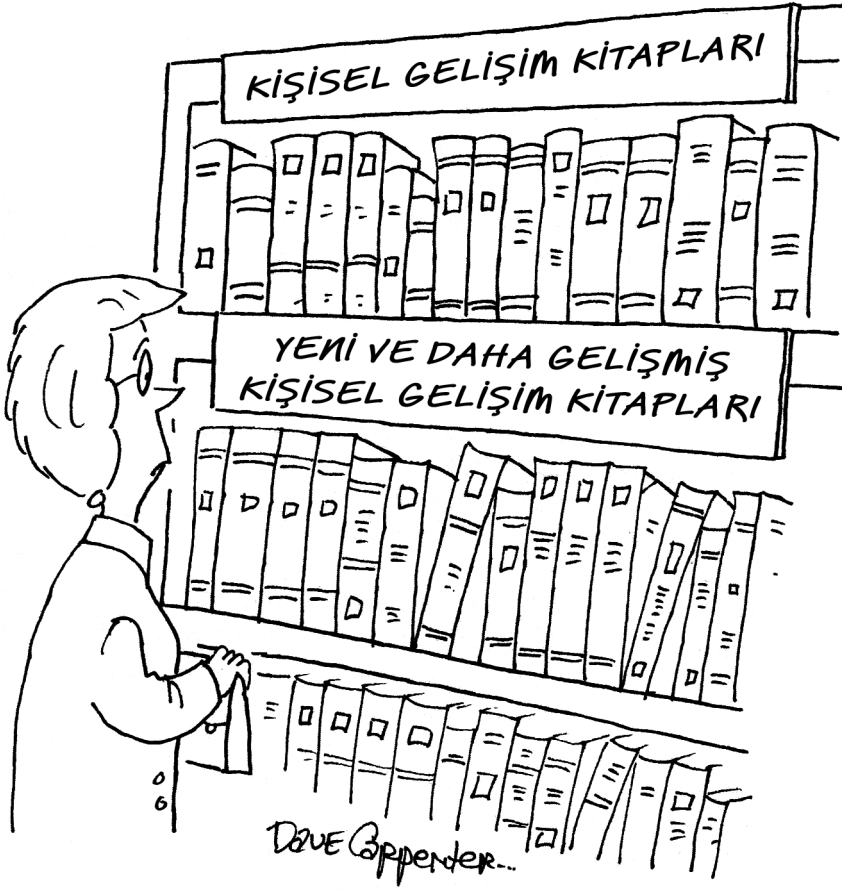 KİŞİSEL GELİŞİM KİTAPLARI
YENİ VE DAHA GELİŞMİŞ
KİŞİSEL GELİŞİM KİTAPLARI
Dave Carpenter...